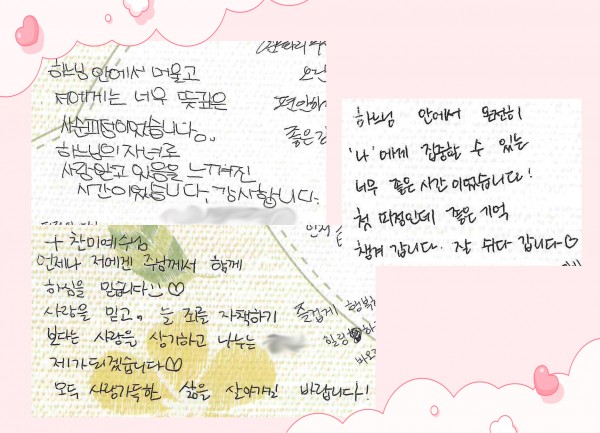 하느님 안에서 머물고
저에게는 너무 뜻깊은
사순피정이었습니다.
하느님의 자녀로
사랑받고 있음을 느껴진
시간이었습니다. 감사합니다.
편안하
좋은
하느님 안에서 온전히
'나'에게 집중할 수 있는
너무 좋은 시간이었습니다!
첫 피정인데 좋은 기억
챙겨 갑니다. 잘 쉬다 갑니다♡
+ 찬미예수님
언제나 저에겐 주님께서 함께
하심을 믿습니다!! ♡
사랑을 믿고. 늘 죄를 자책하기
보다는 사랑을 생각하고 나누는
제가되겠습니다♡
모두 사랑가득한 삶을 살아가길 바랍니다!
즐겁게 행복